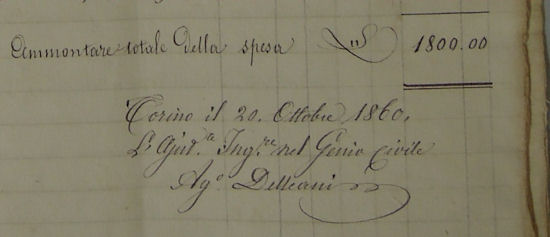 Ammontare totale della spesa L. 1800.00
Torino il 20. Ottobre 1860,
L'Ajut.e Ing.re nel Genio Civile
Ag.o Delleani